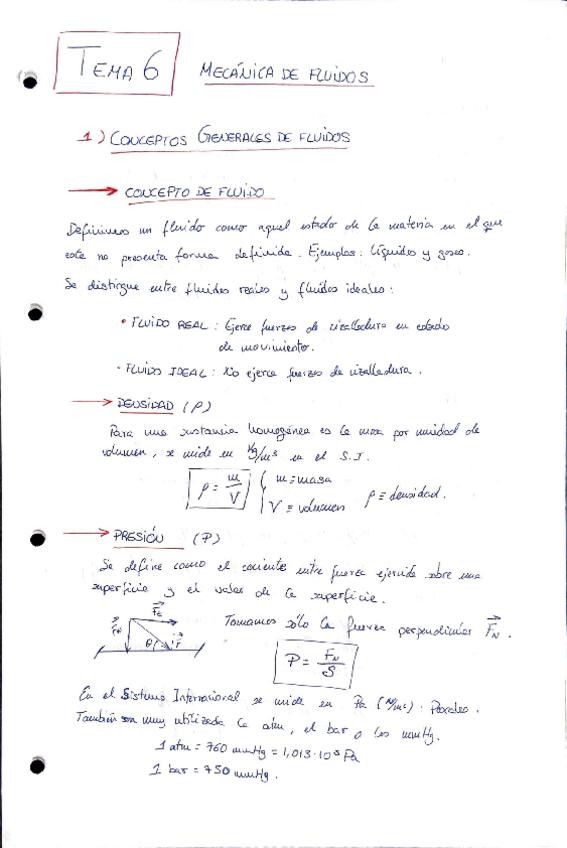 TEMA 6 MECÁNICA DE FLUIDOS
1) CONCEPTOS GENERALES DE FLUIDOS
→ CONCEPTO DE FLUIDO
Definimos un fluido como aquel estado de la materia en el que
este no presenta forma definida. Ejemplos: líquidos y gases.
Se distingue entre fluidos reales y fluidos ideales:
• FLUIDO REAL: Ejerce fuerzas de cizalladura en estado
de movimiento.
• FLUIDO IDEAL: No ejerce fuerzas de cizalladura.
→ DENSIDAD (ρ)
Para una sustancia homogénea es la masa por unidad de
volumen, se mide en kg/m³ en el S.I.
ρ = m/V { m ≡ masa
V ≡ volumen ρ ≡ densidad.
→ PRESIÓN (P)
Se define como el cociente entre fuerza ejercida sobre una
superficie y el valor de la superficie.
Tomamos sólo la fuerza perpendicular F_N.
θ F
P = F_N/S
En el Sistema Internacional se mide en Pa (N/m²). Pascales.
También son muy utilizada la atm, el bar o los mmHg.
1 atm = 760 mmHg = 1,013·10⁵ Pa
1 bar = 750 mmHg.